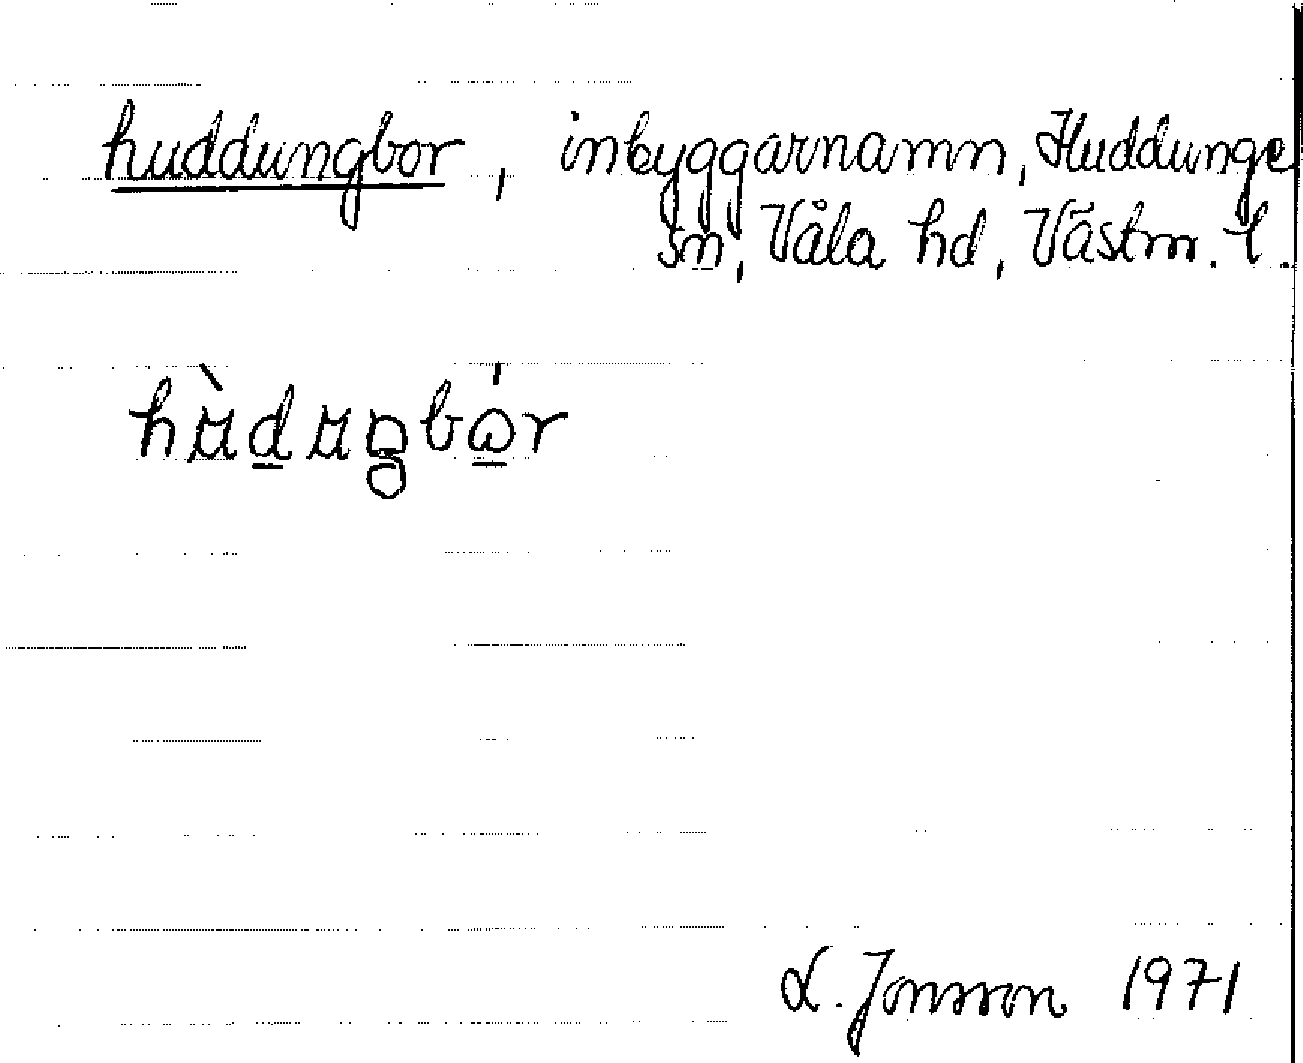 huddungbor, inbyggarnamn, Huddunge
sn, Våla hd, Västm. l.
hùduŋbór
L. Jonsson 1971